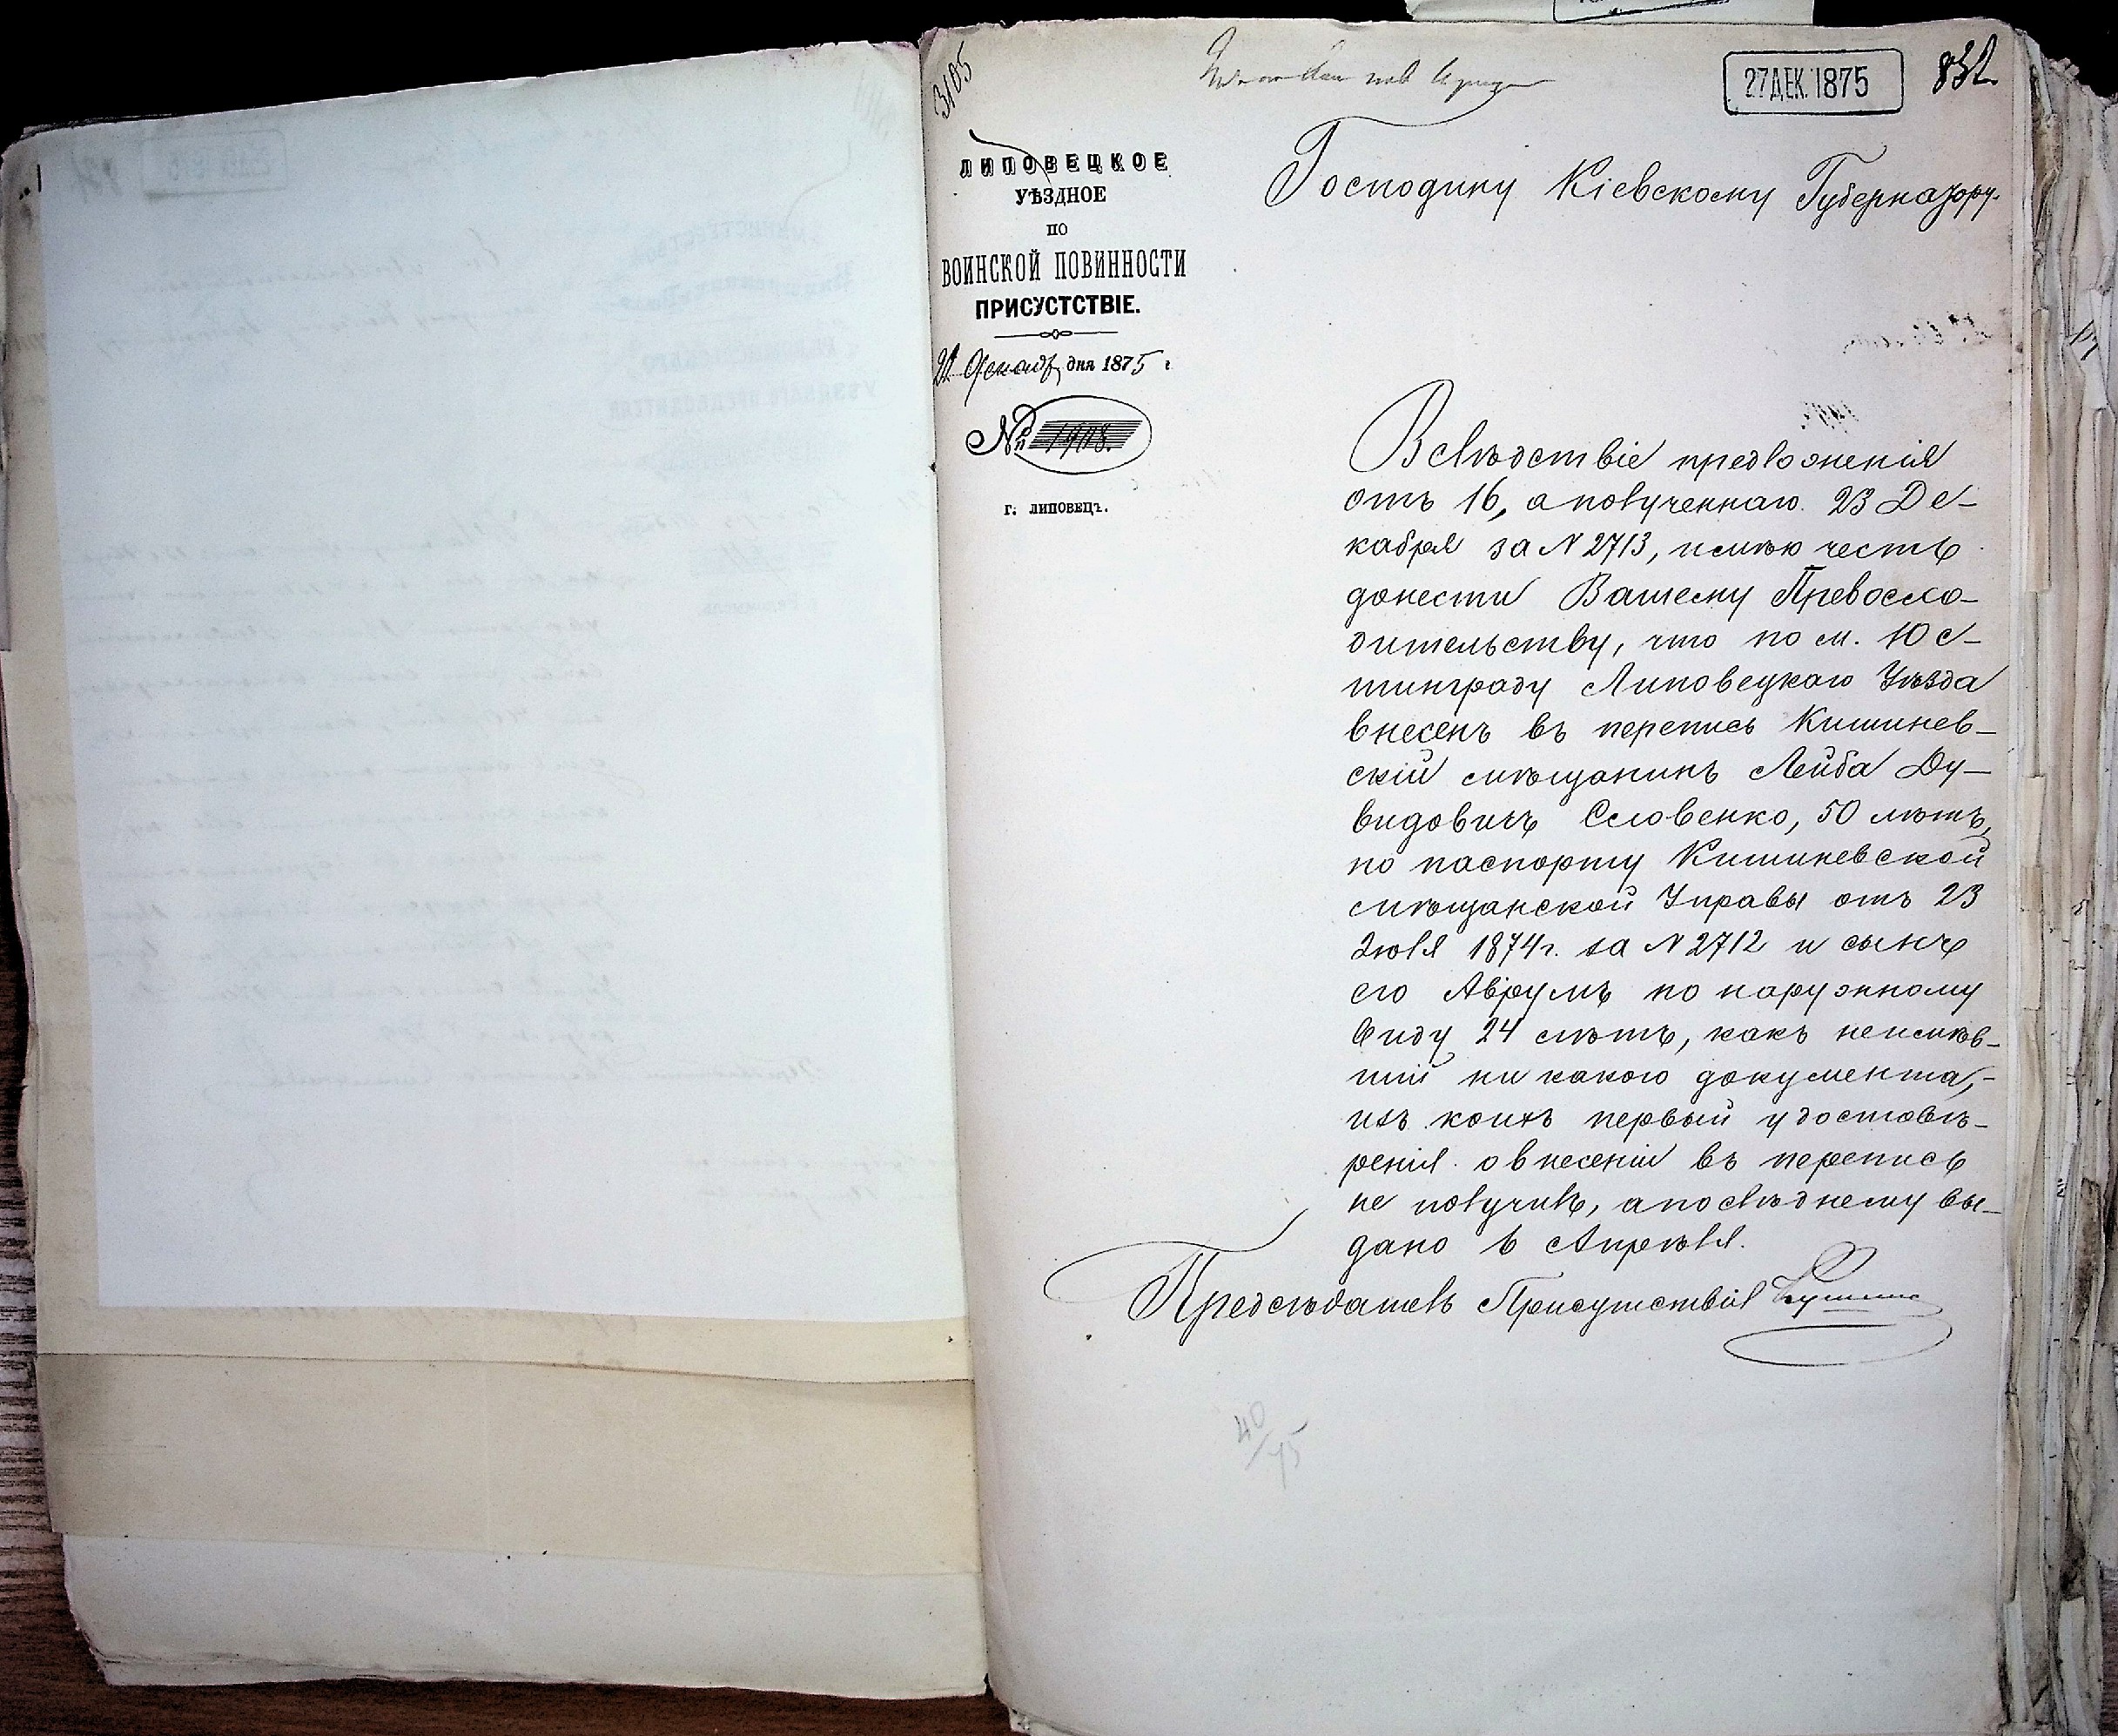 3105
27 ДЕК. 1875
832
ЛИПОВЕЦКОЕ
УѢЗДНОЕ
ПО
ВОИНСКОЙ ПОВИННОСТИ
ПРИСУСТСТВІЕ.
Декабр дня 1875 г
№ 1908.
г. ЛИПОВЕЦЪ.
Господину Кіевскому Губернатору.
Вслѣдствіе предложенія
отъ 16, а полученнаго 23 Де-
кабря за N 2713, имѣю честь
донести Вашему Превосхо-
дительству, что по м. Юс-
тинграду Липовецкаго Уѣзда
внесенъ въ перепись Кишинев-
скій мѣщанинъ Лейба Ду-
видовичъ Словенко, 50 лѣтъ,
по паспорту Кишиневской
мѣщанской Управы отъ 23
Іюля 1874 г. за N 2712 и сынъ
его Аврумъ по наружному
виду 24 лѣтъ, какъ неимѣв-
шій ни какого документа,-
изъ коихъ первый удостовѣ-
ренія о внесеніи въ перепись
не получилъ, а послѣднему вы-
дано 6 Апрѣля.
Предсѣдатель Присутствія
40/75